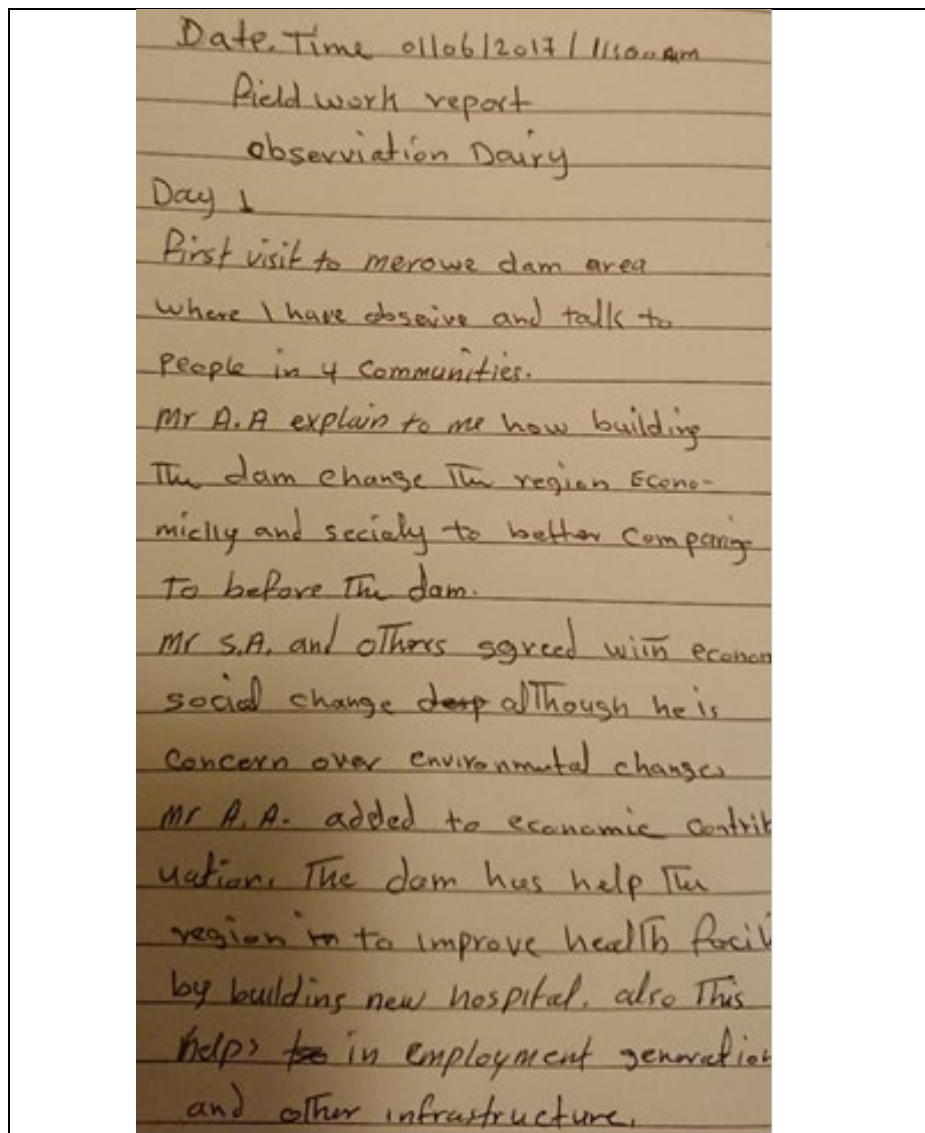 Date. Time 01/06/2017 / 11:00 am
Field work report
observiation Dairy
Day 1
First visit to merowe dam area
where I have observe and talk to
people in 4 Communities.
Mr A.A explain to me how building
The dam change The region Econo-
miclly and socialy to better Comparing
To before The dam.
Mr S.A. and others agreed with econom
social change although he is
Concern over environmental changes
Mr A.A. added to economic contrib
uation. The dam has help The
region to improve health facil
by building new hospital. also This
helps in employment generation
and other infrastructure.